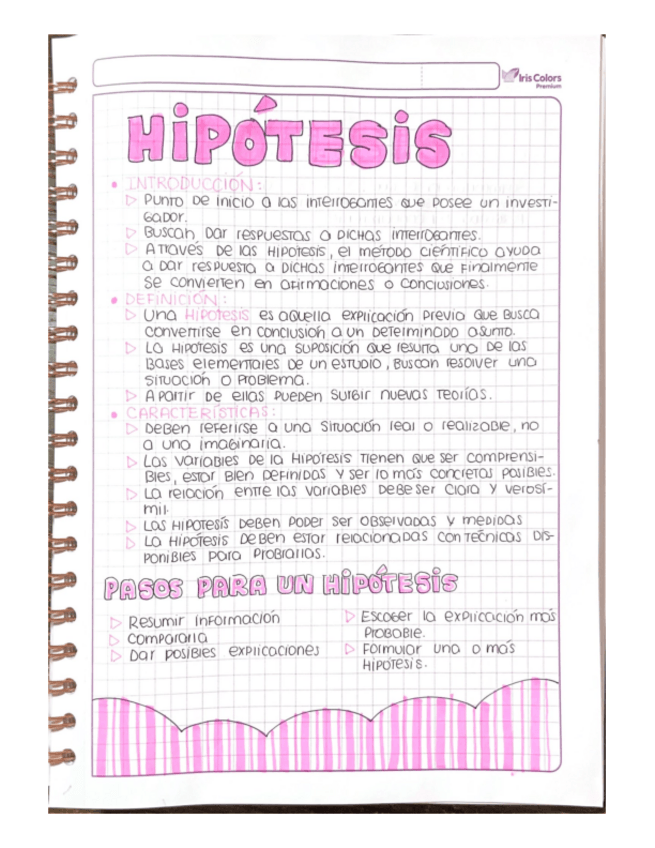 Iris Colors
Premium
HIPÓTESIS
• INTRODUCCIÓN:
▷ Punto de inicio a las interrogantes que posee un investi-
gador.
▷ Buscan dar respuestas a dichas interrogantes.
▷ Através de las hipotesis, el metodo científico ayuda
a dar respuesta a dichas interrogantes que finalmente
se convierten en afirmaciones o conclusiones.
• DEFINICIÓN:
▷ Una hipótesis es aquella explicación previa que busca
convertirse en conclusión a un determinado asunto.
▷ La hipotesis es una suposición que resulta uno de las
bases elementales de un estudio, buscan resolver una
situación o problema.
▷ A partir de ellas pueden surgir nuevas teorías.
• CARACTERÍSTICAS:
▷ Deben referirse a una situación real o realizable, no
a una imaginaria.
▷ Las variables de la hipotesis tienen que ser comprensi-
bles, estar bien definidas y ser lo más concretas posibles.
▷ La relación entre las variables debe ser clara y verosí-
mil.
▷ Las hipotesis deben poder ser observadas y medidas
▷ La hipotesis deben estar relacionadas con técnicas dis-
ponibles para probarlas.
PASOS PARA UN HIPÓTESIS
▷ Resumir información
▷ Compararla
▷ Dar posibles explicaciones
▷ Escoger la explicación más
probable.
▷ Formular una o más
hipotesis.